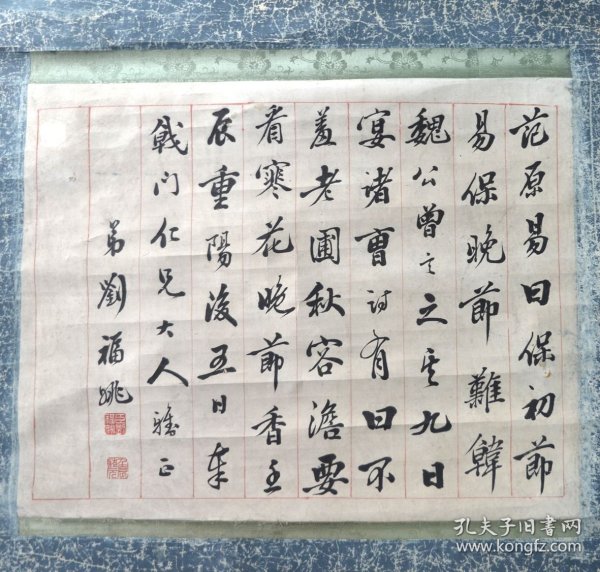 范原易曰保初節
易保晚節難韓
魏公曾言之其九日
宴諸曹詩有曰不
羞老圃秋容澹要
看寒花晚節香壬
辰重陽後五日奉
戟門仁兄大人雅正
弟劉福姚
孔夫子旧书网
www.kongfz.com